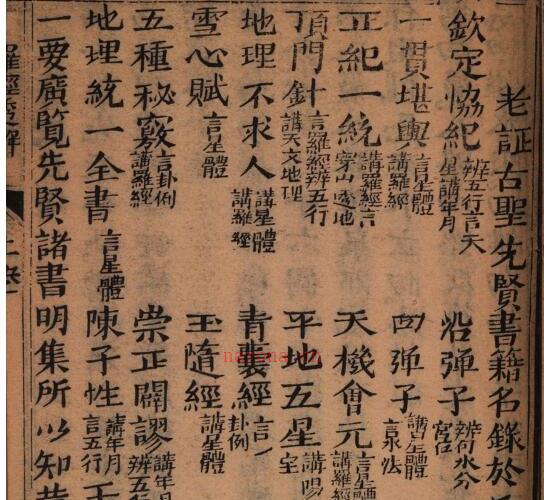 老証古聖先賢書籍名錄於
欽定協紀 辨五行言天星講年月 沿弹子 辨何水分宮位
一貫堪輿 言星體講羅經 四弹子 講星體言泉法
正紀一統 講羅經言穿山透地 天機會元 言星體講羅經
頂門針 言羅經辨五行講天文地理 平地五星 講陽宅
地理不求人 講星體講羅經 青囊經 言一卦例
雪心賦 言星體 玉隨經 講星體
五種秘竅 言卦例講羅經 崇正闢謬 講年月辨五行
地理統一全書 言星體 陳子性 講年月言五行
一要廣覽先賢諸書明集所以知
羅經